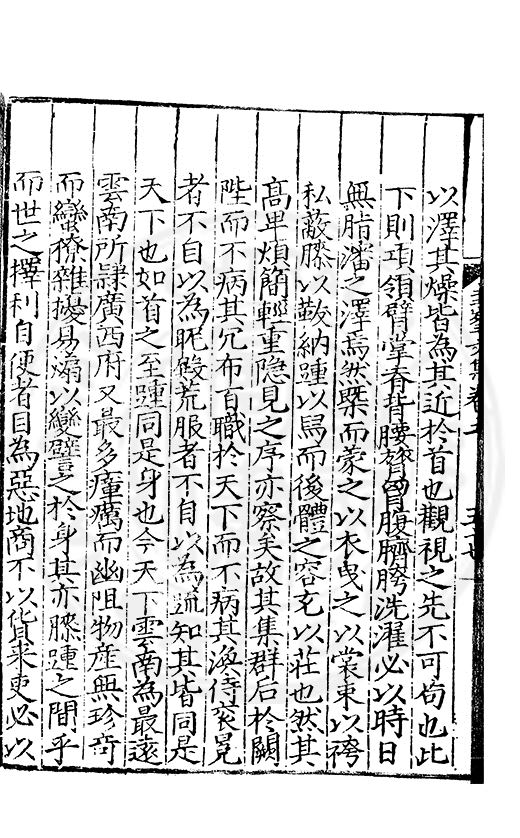 以澤其燥皆為其近於首也觀視之先不可苟也此
下則項領臂掌脊背腰膂胷腹臍胯洗濯必以時日
無脂瀋之澤焉然槩而蒙之以衣曳之以裳束以袴
私蔽膝以韍納踵以舄而後體之容充以莊也然其
高卑煩簡輕重隱見之序亦察矣故其集群后於闕
陛而不病其冗布百職於天下而不病其海侍袞冕
者不自以為昵假荒服者不自以為踈知其皆同是
天下也如首之至踵同是身也今天下雲南為最遠
雲南所隷廣西府又最多瘴癘而幽岨物産無珍奇
而蠻獠雜擾易煽以變譬之於身其亦膝踵之間乎
而世之擇利自便者目為惡地商不以貨来吏必以